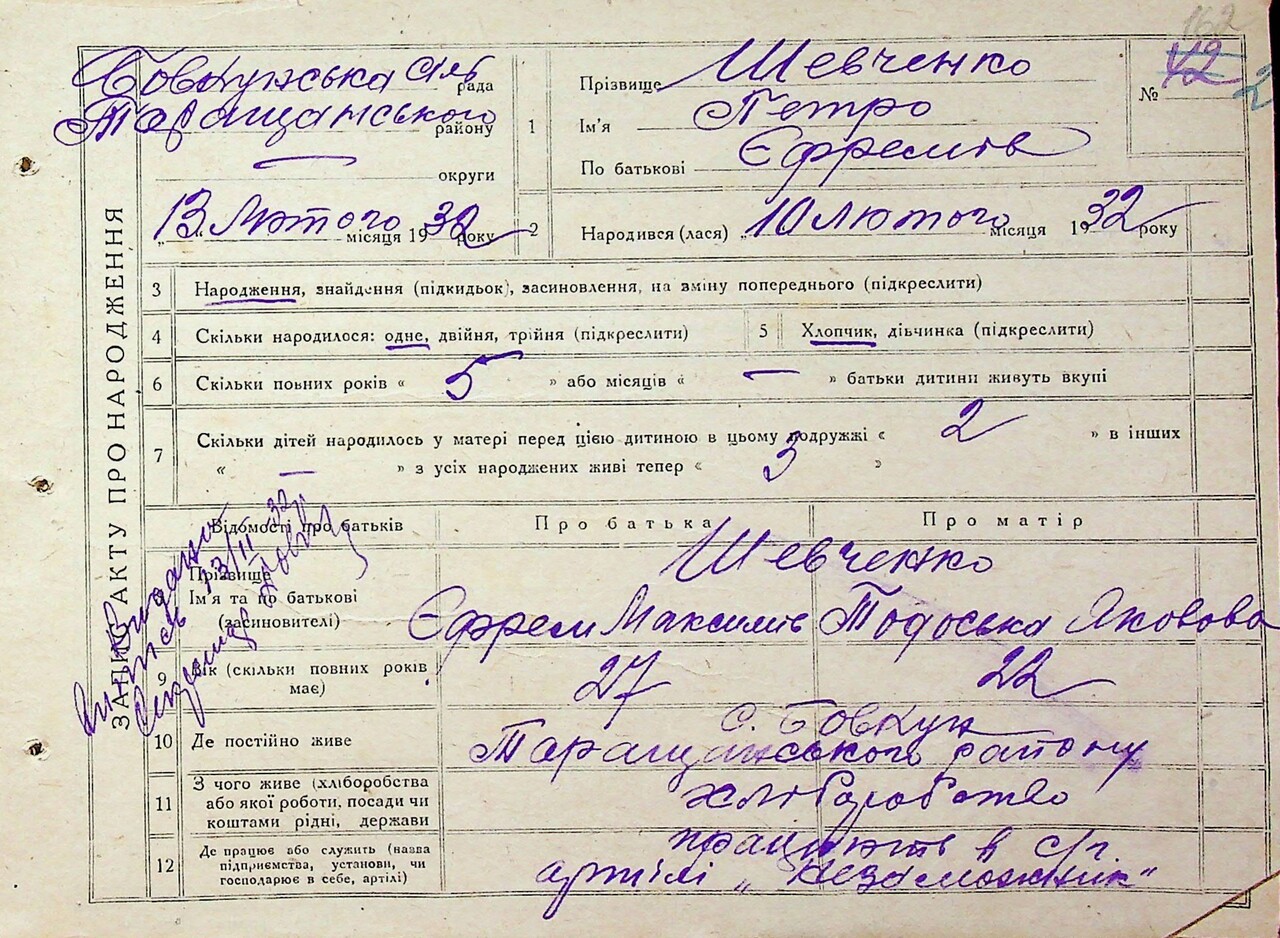 162
Бовкунська сіль рада
Таращанського району
— округи
„13“ Лютого місяця 1932 року
1
Прізвище Шевченко
Ім'я Петро
По батькові Єфремів
№ 2
2
Народився (лася) „10 лютого місяця 1932 року
ЗАПИС АКТУ ПРО НАРОДЖЕННЯ
3 Народження, знайдення (підкидьок), засиновлення, на зміну попереднього (підкреслити)
4 Скільки народилося: одне, двійня, трійня (підкреслити) 5 Хлопчик, дівчинка (підкреслити)
6 Скільки повних років « 5 » або місяців « — » батьки дитини живуть вкупі
7 Скільки дітей народилось у матері перед цією дитиною в цьому подружжі « 2 » в інших
« — » з усіх народжених живі тепер « 3 »
Відомості про батьків Про батька Про матір
Прізвище Шевченко
Ім'я та по батькові
(засиновителі) Єфрем Максимів Тодоська Яковова
9 Вік (скільки повних років
має) 27 22
10 Де постійно живе с. Бовкун
Таращанського району
11 З чого живе (хліборобства
або якої роботи, посади чи
коштами рідні, держави хліборобство
12 Де працює або служить (назва
підприємства, установи, чи
господарює в себе, артілі) працюють в с/г.
артілі „Незаможник“
Видано
витяг 13/II 32р.